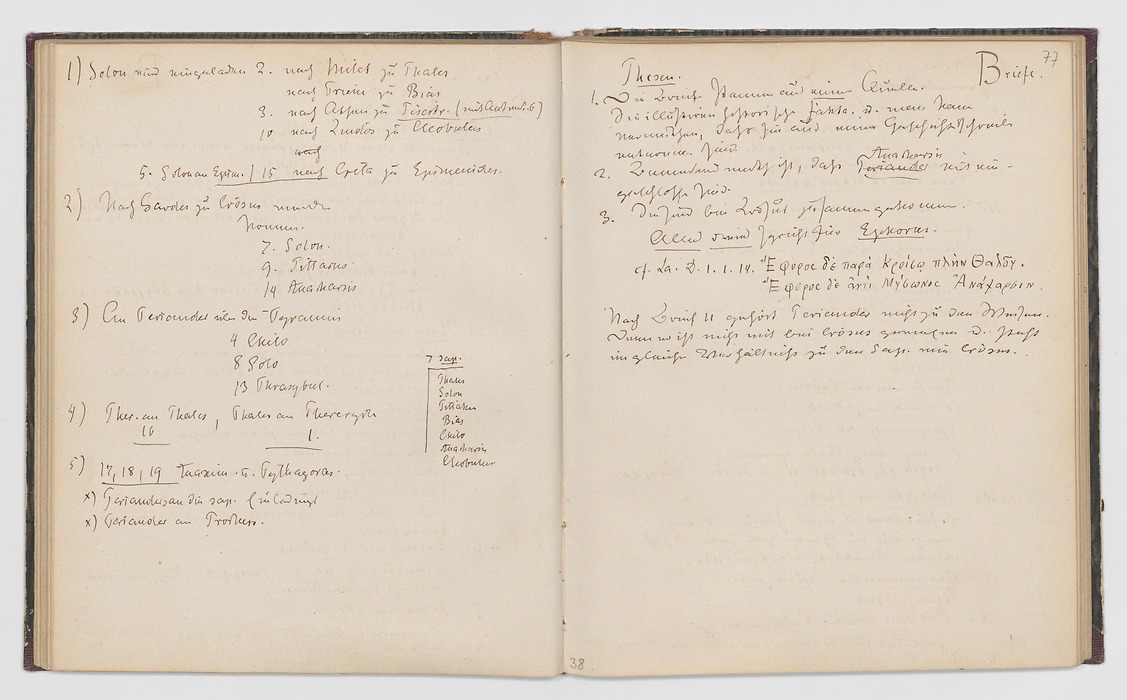 1) Solon wird eingeladen 2. nach Milet zu Thales
nach Priene zu Bias
3. nach Athen zu Pisistr. (mit Antwort. 6)
10 nach Lindos zu Cleobulus
nach
5. Solon an Epim. / 15 nach Creta zu Epimenides.
2) Nach Sardes zu Crösus
kommen.
7. Solon.
9. Pittacus
14 Anacharsis
3) An Periander über die Tyrannis
4 Chilo
8 Solo
13 Thrasybul.
4) Pher. an Thales, Thales an Pherecyd.
16 1.
5) 17, 18, 19 Anaxim. u. Pythagoras.
x) Periander an die sap. Einladung
x) Periander an Prokles.
7 sap.
Thales
Solon
Pittakus
Bias
Chilo
Anacharsis
Cleobulus
77
Briefe.
Thesen.
1. Die Briefe stammen aus einer Quelle.
Sie illustrieren historische Fakta. u. man kann
vermuthen, daß sie aus einem Geschichtschreib
entnommen sind.
2. Bemerkenswerth ist, daß Periander mit ein-
Anacharsis
geschlossen sind.
3. Die sind bei Krösus zusammengekommen.
Alles dies spricht für Ephorus.
cf. La. D. 1. 1. 14. Ἔφορος δὲ παρὰ Κροίσῳ πλὴν Θαλοῦ.
Ἔφορος δὲ ἀντὶ Μύσωνος Ἀνάχαρσιν.
Nach Brief 11 gehört Periander nicht zu den Weisen.
Denn er ist nicht mit bei Crösus gewesen u. steht
in gleichem Verhältniß zu den Sap. wie Crösus.
38